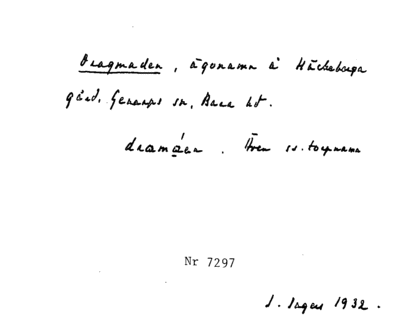 Dragmaden, ägonamn å Häckeberga
gård, Genarps sn, Bara hd.
dramáen. Även ss. torpnamn
Nr 7297
I. Ingers 1932.